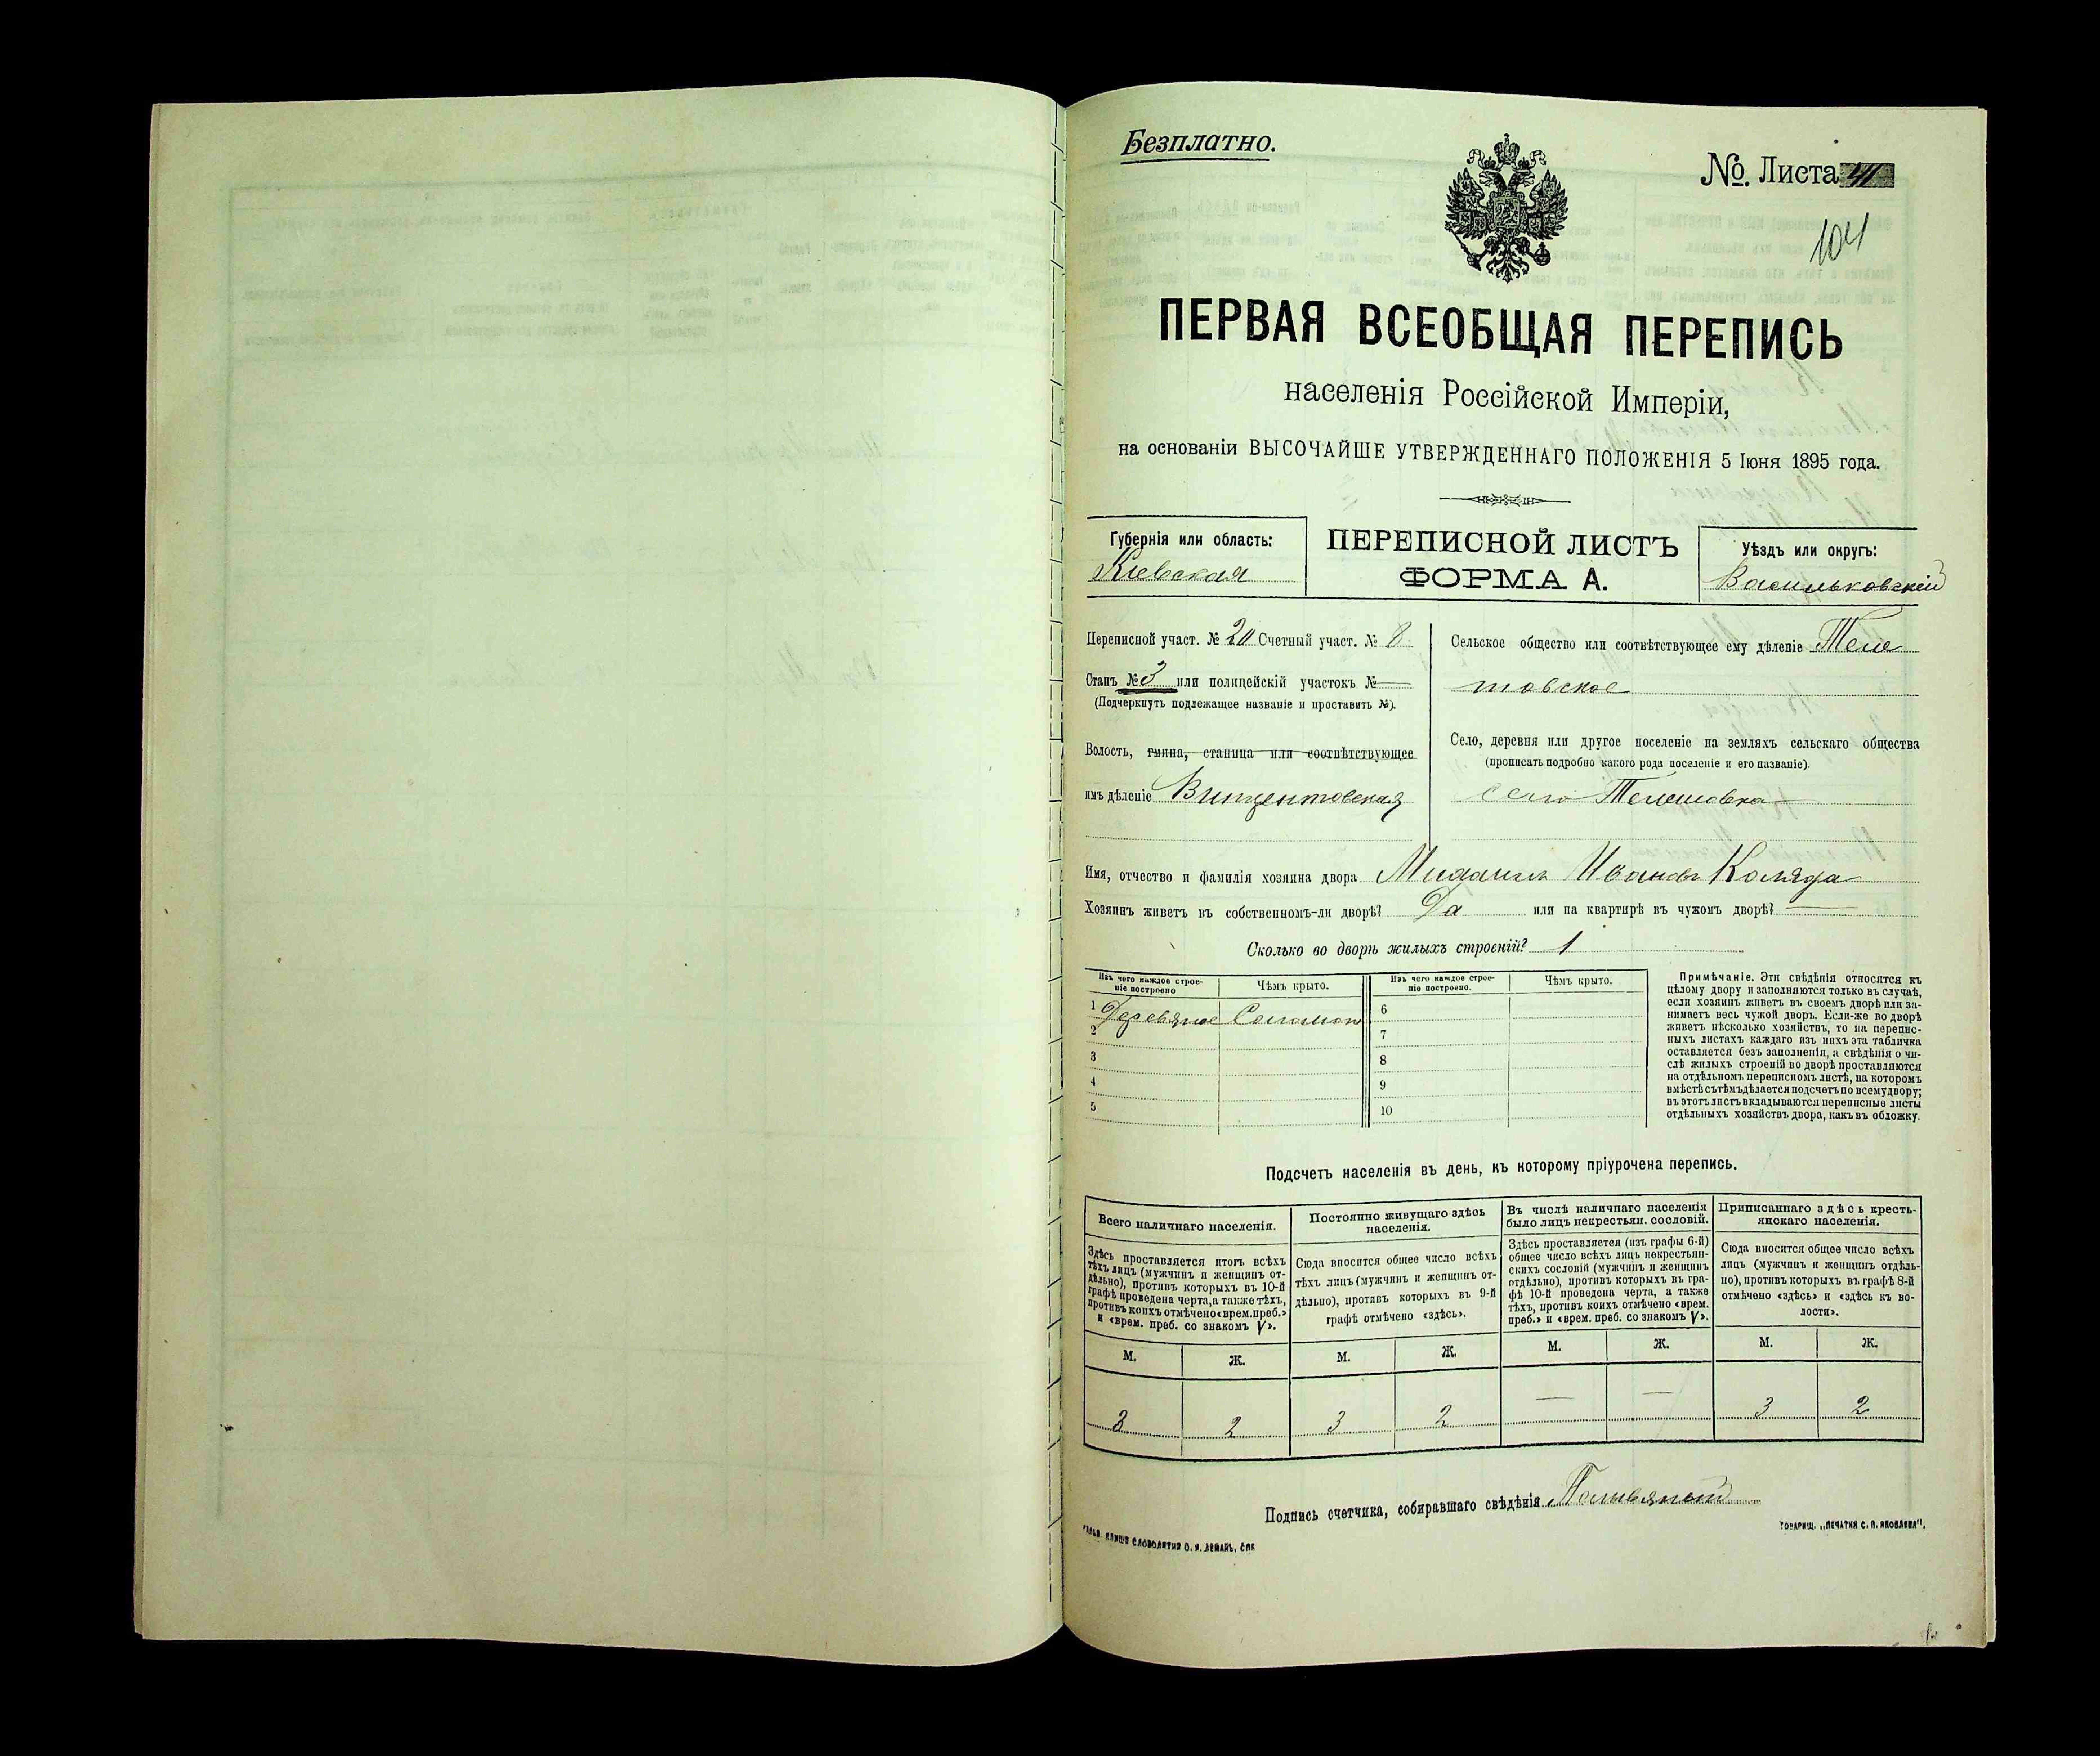 Безплатно.
№. Листа 41
104
ПЕРВАЯ ВСЕОБЩАЯ ПЕРЕПИСЬ
населенія Россійской Имперіи,
на основаніи ВЫСОЧАЙШЕ УТВЕРЖДЕННАГО ПОЛОЖЕНІЯ 5 Іюня 1895 года.
Губернія или область:
Кіевская
ПЕРЕПИСНОЙ ЛИСТЪ
ФОРМА А.
Уѣздъ или округъ:
Васильковскій
Переписной участ. № 20 Счетный участ. № 8
Станъ № 3 или полицейскій участокъ № —
(Подчеркнуть подлежащее названіе и проставить №).
Волость, гмина, станица или соотвѣтствующее
имъ дѣленіе Винцентовская
Сельское общество или соотвѣтствующее ему дѣленіе Теле
Село, деревня или другое поселеніе на земляхъ сельскаго общества
(прописать подробно какого рода поселеніе и его названіе).
село Телешовка
Имя, отчество и фамилія хозяина двора Михаилъ Ивановъ Коляда
Хозяинъ живетъ въ собственномъ-ли дворѣ? Да или на квартирѣ въ чужомъ дворѣ? —
Сколько во дворѣ жилыхъ строеній? 1
Изъ чего каждое строе-
ніе построено
Чѣмъ крыто.
Изъ чего каждое строе-
ніе построено.
Чѣмъ крыто.
1 Деревяное Соломою
2
3
4
5
6
7
8
9
10
Примѣчаніе. Эти свѣдѣнія относятся къ
цѣлому двору и заполняются только въ случаѣ,
если хозяинъ живетъ въ своемъ дворѣ или за-
нимаетъ весь чужой дворъ. Если-же во дворѣ
живетъ нѣсколько хозяйствъ, то на перепис-
ныхъ листахъ каждаго изъ нихъ эта табличка
оставляется безъ заполненія, а свѣдѣнія о чи-
слѣ жилыхъ строеній во дворѣ проставляются
на отдѣльномъ переписномъ листѣ, на которомъ
вмѣстѣ съ тѣмъ дѣлается подсчетъ по всему двору;
въ этотъ листъ вкладываются переписные листы
отдѣльныхъ хозяйствъ двора, какъ въ обложку.
Подсчетъ населенія въ день, къ которому пріурочена перепись.
Всего наличнаго населенія.
Здѣсь проставляется итогъ всѣхъ
тѣхъ лицъ (мужчинъ и женщинъ от-
дѣльно), противъ которыхъ въ 10-й
графѣ проведена черта, а также тѣхъ,
противъ коихъ отмѣчено «врем. преб.»
и «врем. преб. со знакомъ V».
Постоянно живущаго здѣсь
населенія.
Сюда вносится общее число всѣхъ
тѣхъ лицъ (мужчинъ и женщинъ от-
дѣльно), противъ которыхъ въ 9-й
графѣ отмѣчено «здѣсь».
Въ числѣ наличнаго населенія
было лицъ некрестьян. сословій.
Здѣсь проставляется (изъ графы 6-й)
общее число всѣхъ лицъ некрестьян-
скихъ сословій (мужчинъ и женщинъ
отдѣльно), противъ которыхъ въ гра-
фѣ 10-й проведена черта, а также
тѣхъ, противъ коихъ отмѣчено «врем.
преб.» и «врем. преб. со знакомъ V».
Приписаннаго здѣсь кресть-
янскаго населенія.
Сюда вносится общее число всѣхъ
лицъ (мужчинъ и женщинъ отдѣль-
но), противъ которыхъ въ графѣ 8-й
отмѣчено «здѣсь» и «здѣсь къ во-
лости».
М. Ж. М. Ж. М. Ж. М. Ж.
3 2 3 2 — — 3 2
Подпись счетчика, собиравшаго свѣдѣнія
СЛОВОЛИТНИ О. И. ЛЕМАНЪ, СПБ
ТОВАРИЩ. „ПЕЧАТНЯ С. П. ЯКОВЛЕВА",